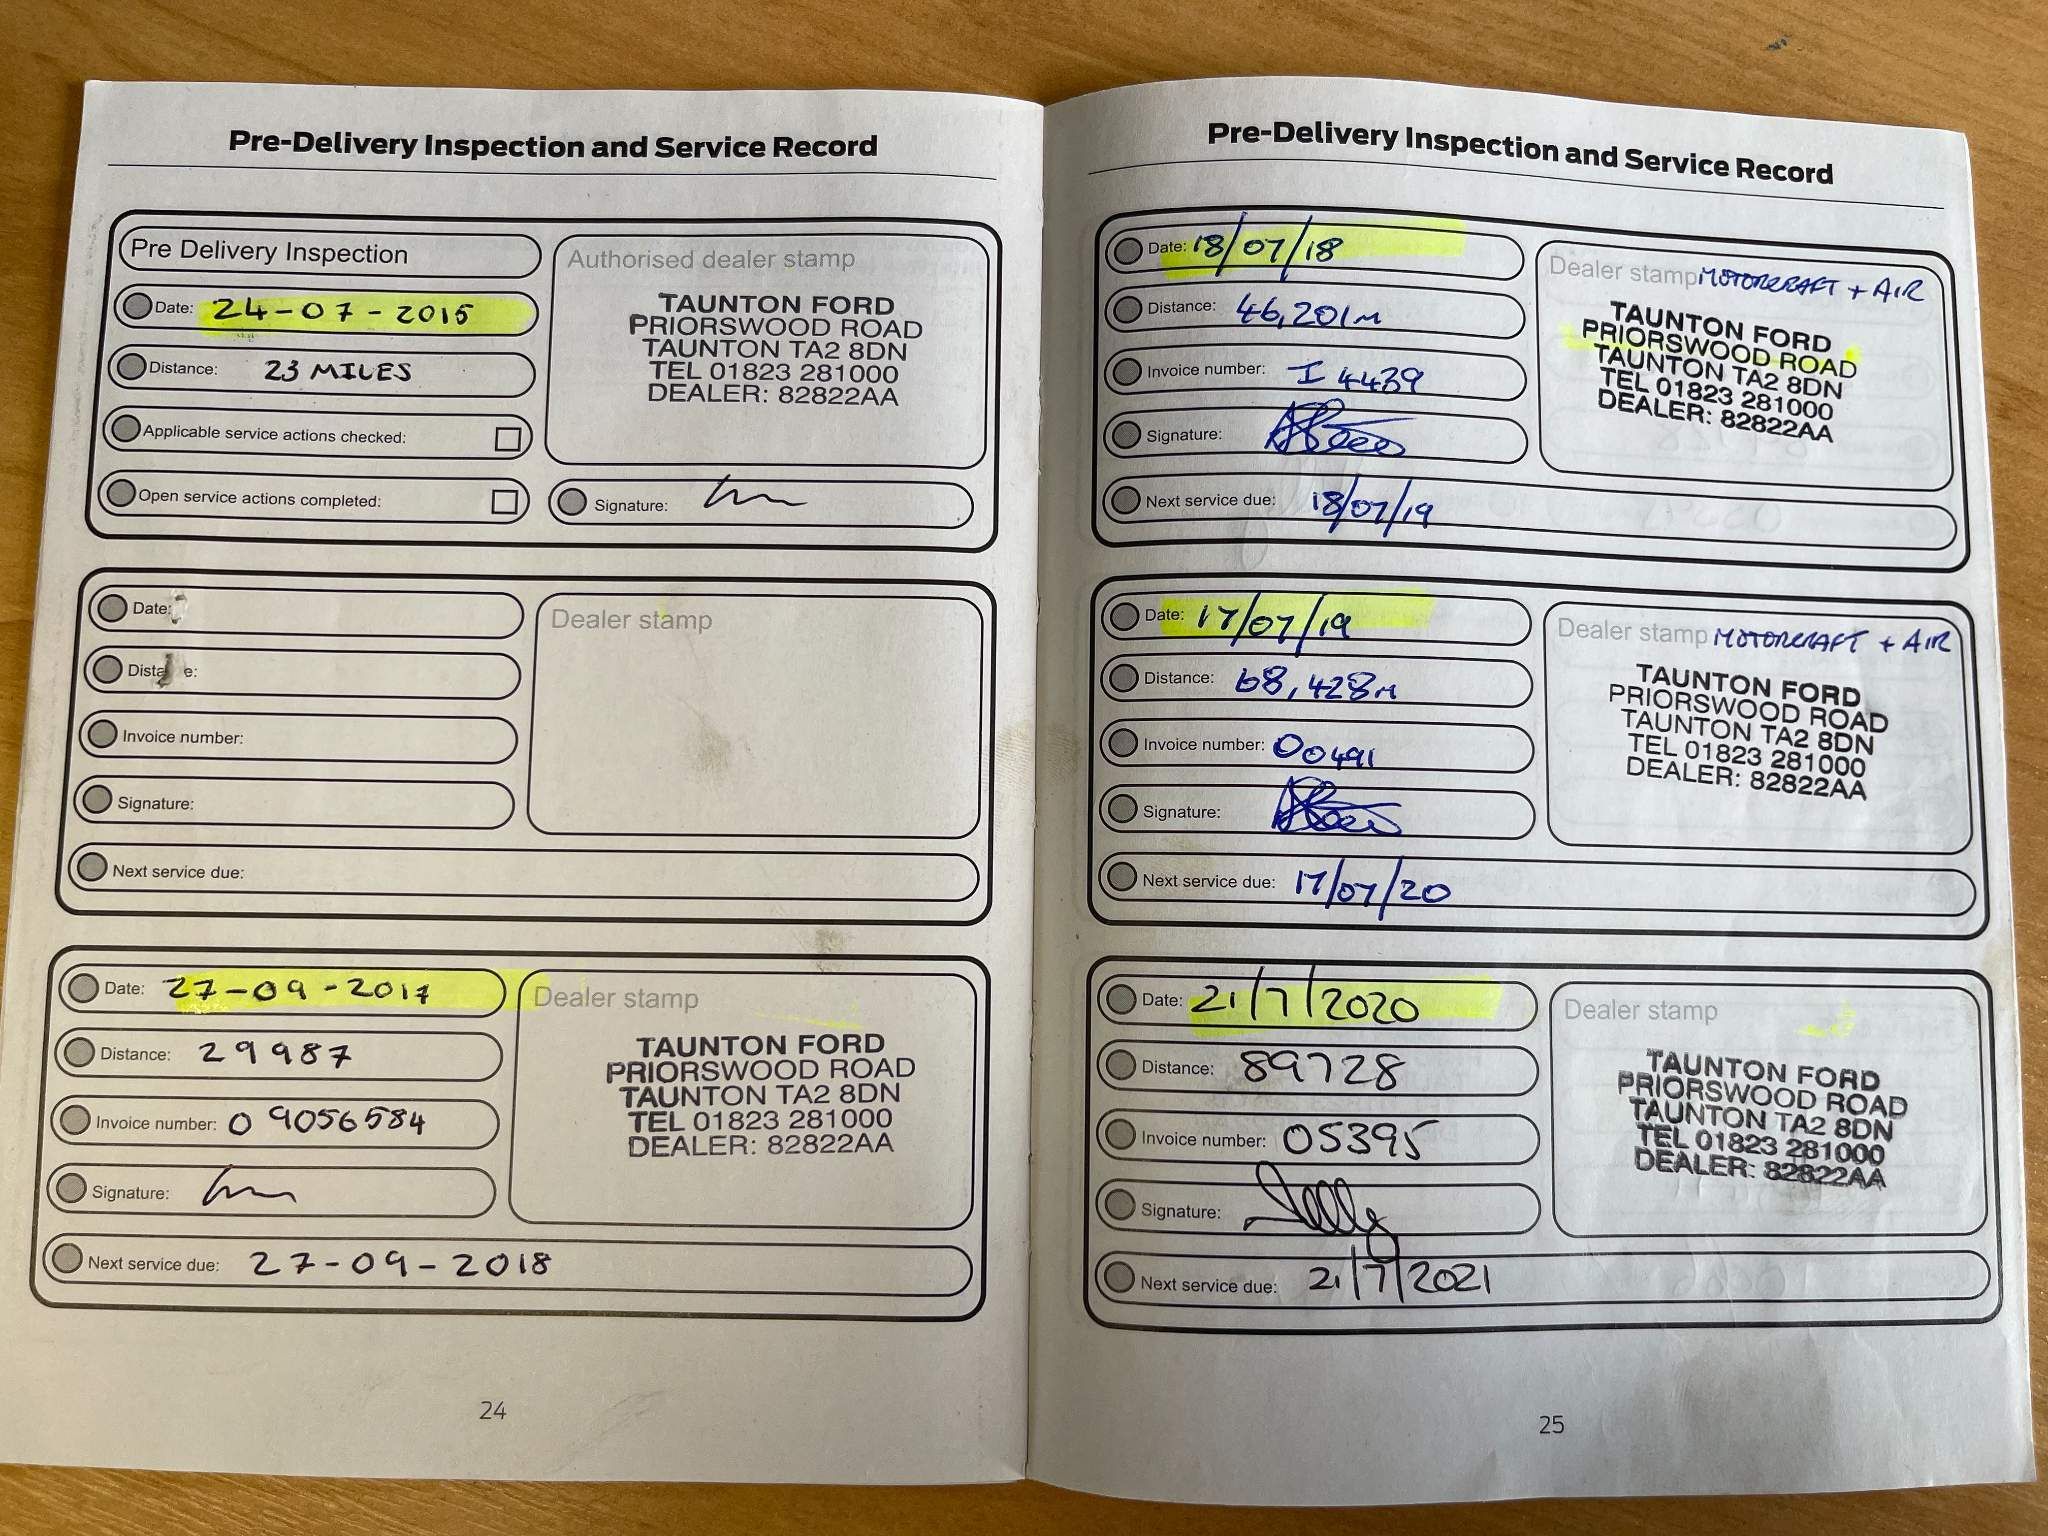 Pre-Delivery Inspection and Service Record
Pre Delivery Inspection
Date: 24-07-2015
Distance: 23 MILES
Applicable service actions checked:
Open service actions completed:
Authorised dealer stamp
TAUNTON FORD
PRIORSWOOD ROAD
TAUNTON TA2 8DN
TEL 01823 281000
DEALER: 82822AA
Signature:
Date:
Distance:
Invoice number:
Signature:
Dealer stamp
Next service due:
Date: 27-09-2017
Distance: 29987
Invoice number: 09056584
Signature:
Dealer stamp
TAUNTON FORD
PRIORSWOOD ROAD
TAUNTON TA2 8DN
TEL 01823 281000
DEALER: 82822AA
Next service due: 27-09-2018
24
Pre-Delivery Inspection and Service Record
Date: 18/07/18
Distance: 46,201M
Invoice number: I 4439
Signature:
Dealer stamp MOTORCRAFT + AIR
TAUNTON FORD
PRIORSWOOD ROAD
TAUNTON TA2 8DN
TEL 01823 281000
DEALER: 82822AA
Next service due: 18/07/19
Date: 17/07/19
Distance: 68,428M
Invoice number: 00491
Signature:
Dealer stamp MOTORCRAFT + AIR
TAUNTON FORD
PRIORSWOOD ROAD
TAUNTON TA2 8DN
TEL 01823 281000
DEALER: 82822AA
Next service due: 17/07/20
Date: 21/7/2020
Distance: 89728
Invoice number: 05395
Signature:
Dealer stamp
TAUNTON FORD
PRIORSWOOD ROAD
TAUNTON TA2 8DN
TEL 01823 281000
DEALER: 82822AA
Next service due: 21/7/2021
25